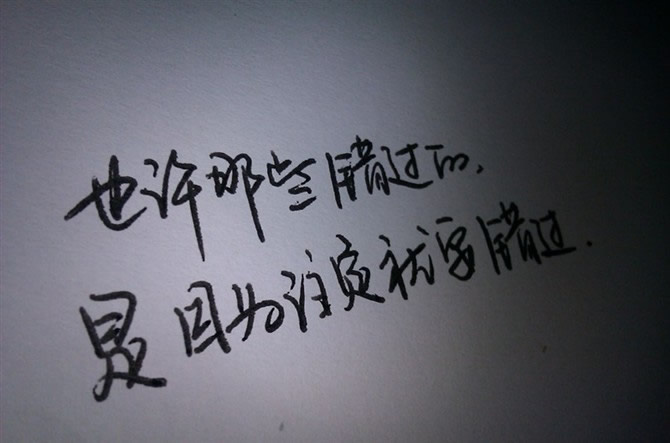 也许那些错过的,
是因为注定就要错过.